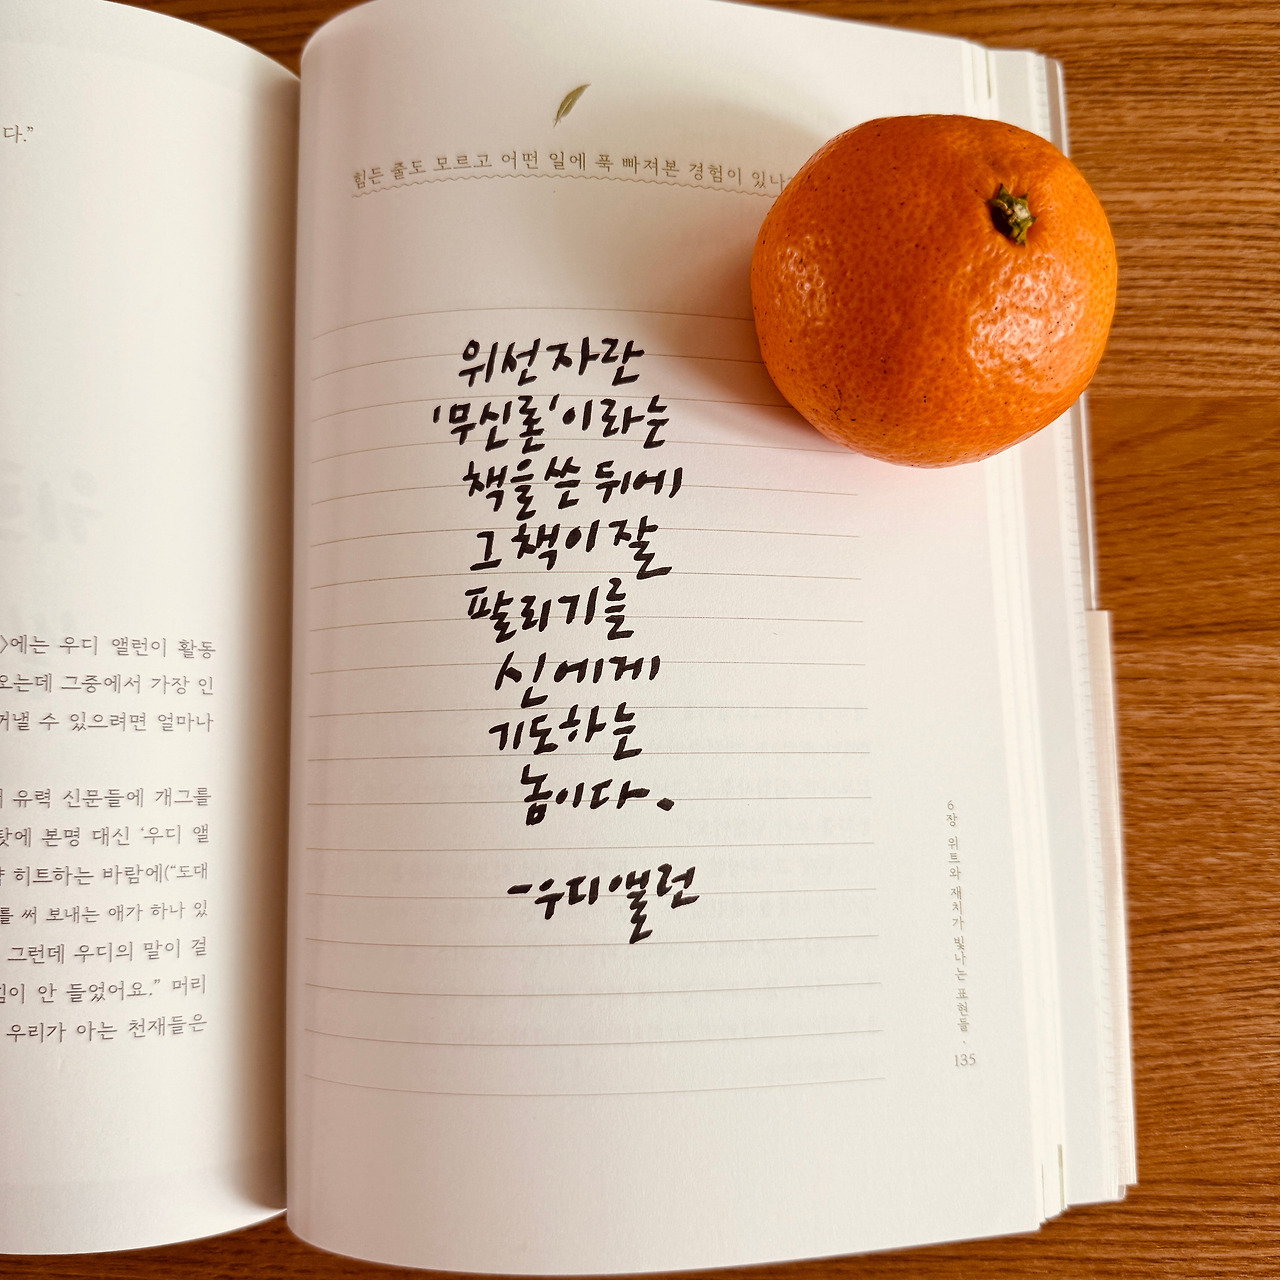 다.”
〉에는 우디 앨런이 활동
오는데 그중에서 가장 인
꺼낼 수 있으려면 얼마나
유력 신문들에 개그를
탓에 본명 대신 ‘우디 앨
히트하는 바람에(“도대
를 써 보내는 애가 하나 있
그런데 우디의 말이 걸
힘이 안 들었어요.” 머리
우리가 아는 천재들은
힘든 줄도 모르고 어떤 일에 푹 빠져본 경험이 있나
위선자란
'무신론'이라는
책을 쓴 뒤에
그 책이 잘
팔리기를
신에게
기도하는
놈이다.
-우디앨런
6장 위트와 재치가 빛나는 표현들 · 135